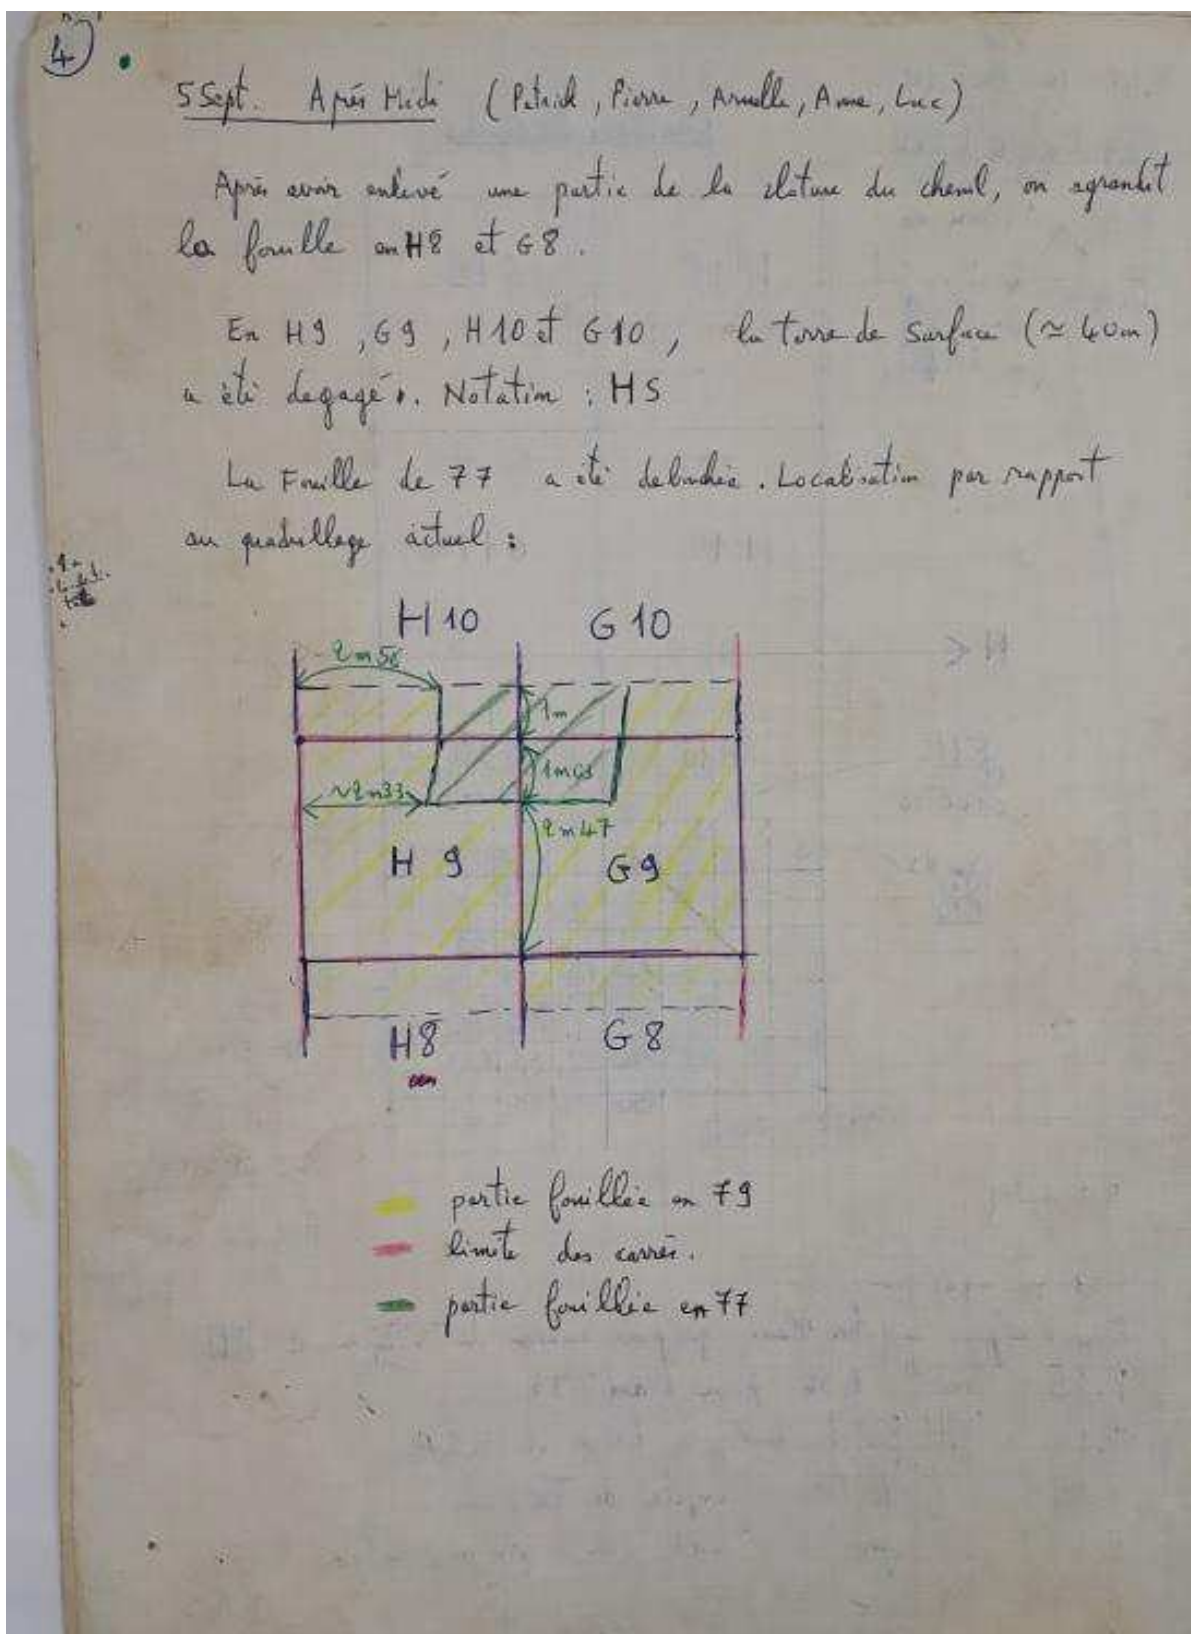 4
5 Sept. Après Midi (Patrick, Pierre, Armelle, Anne, Luc)
Après avoir enlevé une partie de la cloture du chenil, on agrandit
la fouille en H8 et G8.
En H9, G9, H10 et G10, la terre de surface (≃ 40cm)
a été dégagée. Notation : HS
La Fouille de 77 a été debachée. Localisation par rapport
au quadrillage actuel :
H10 G10
2m56
1m
~2m33
2m47
H 9 G9
H8 G8
partie fouillée en 79
limite des carrés.
partie fouillée en 77